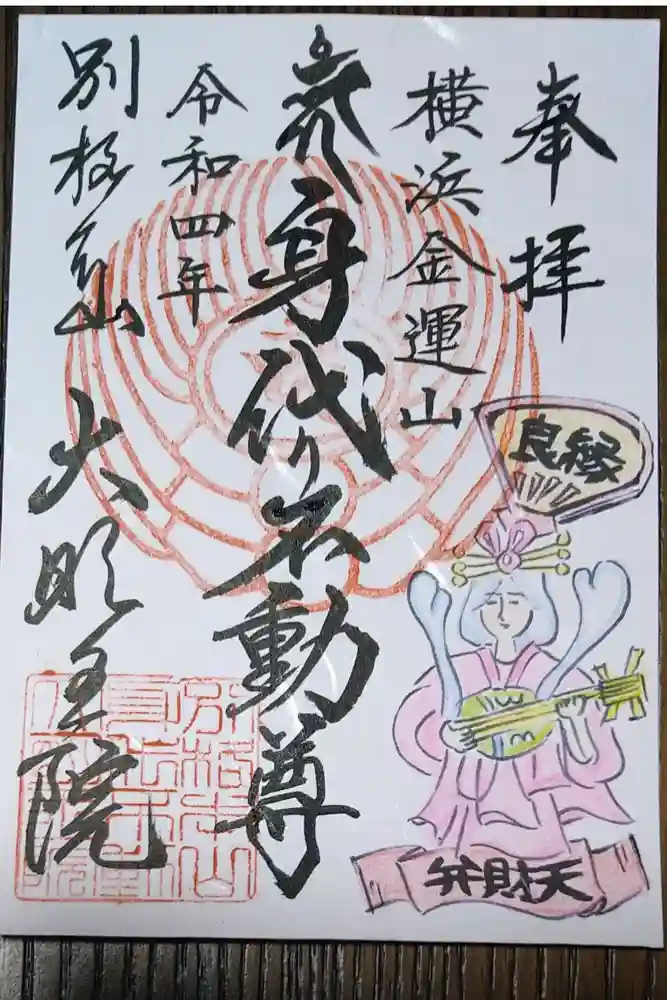 奉拝
良縁
弁財天
横浜金運山
身代り不動尊
令和四年
別格本山 大明王院